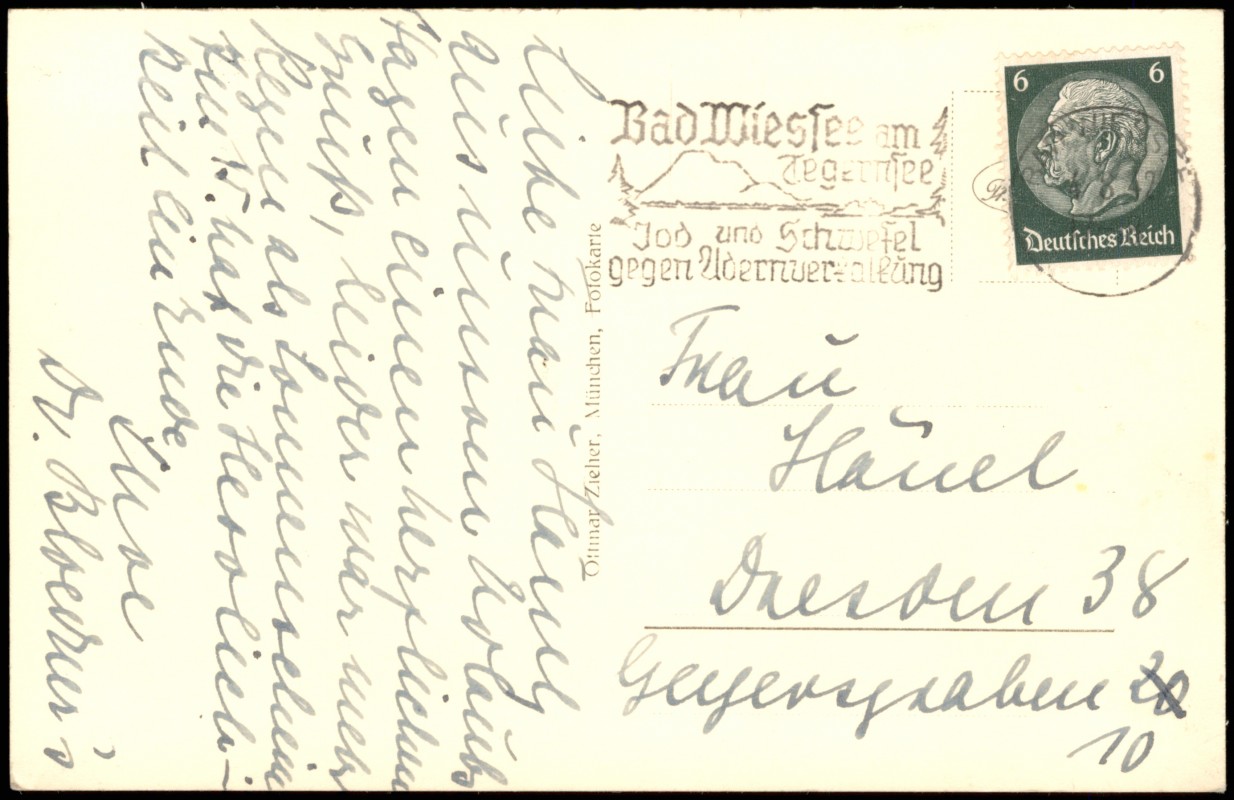 Liebe Frau Hänel
aus unsern Urlaubs-
tagen einen herzlichen
Gruß, leider war mehr
Regen als Sonnenschein
zum hat die Herrlich-
keit ein Ende
Ihre
Dr. Bloedner's
Ottmar Zieher, München, Fotokarte
Bad Wiessee am
Tegernsee
Jod und Schwefel
gegen Adernverkalkung
6 6
Deutsches Reich
Frau
Hänel
Dresden 38
Geyersgraben
10